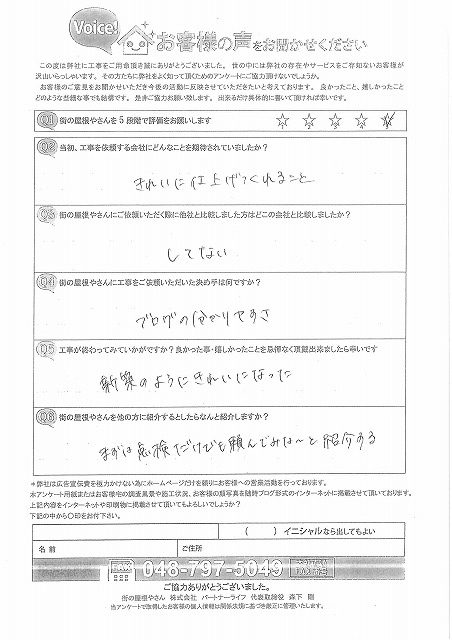 Voice!
お客様の声をお聞かせください
この度は弊社に工事をご用命頂き誠にありがとうございました。 世の中には弊社の存在やサービスをご存知ないお客様が
沢山いらっしゃいます。 その方たちに弊社をよく知って頂くためのアンケートにご協力頂けないでしょうか。
お客様のご意見をお聞かせいただき今後の活動に反映させていただきたいと考えております。 良かったこと、嬉しかったこと
どのような些細な事でも結構です。 是非ご協力お願い致します。 出来るだけ具体的に書いて頂ければ幸いです。
Q1 街の屋根やさんを5段階で評価をお願いします
Q2 当初、工事を依頼する会社にどんなことを期待されていましたか？
きれいに仕上げてくれること
Q3 街の屋根やさんにご依頼いただく際に他社と比較しました方はどこの会社と比較しましたか？
してない
Q4 街の屋根やさんに工事をご依頼いただいた決め手は何ですか？
ブログの分かりやすさ
Q5 工事が終わってみていかがですか？良かった事・嬉しかったことを忌憚なく頂戴出来ましたら幸いです
新築のようにきれいになった
Q6 街の屋根やさんを他の方に紹介するとしたらなんと紹介しますか？
まずは点検だけでも頼んでみな〜と紹介する
＊弊社は広告宣伝費を極力かけない為にホームページだけを頼りにお客様への営業活動を行っております。
本アンケート用紙またはお客様宅の調査風景や施工状況、お客様の顔写真を随時ブログ形式のインターネットに掲載させて頂いております。
上記内容をインターネットや印刷物に掲載させて頂いてもよろしいでしょうか？
下記の中から〇印をお付下さい。
（　）イニシャルなら出してもよい
名 前
ご住所
048-797-5049
ご協力ありがとうございました。
街の屋根やさん 株式会社 パートナーライフ 代表取締役 森下 剛
当アンケートで取得したお客様の個人情報は関係法規に基づき厳正に管理いたします。